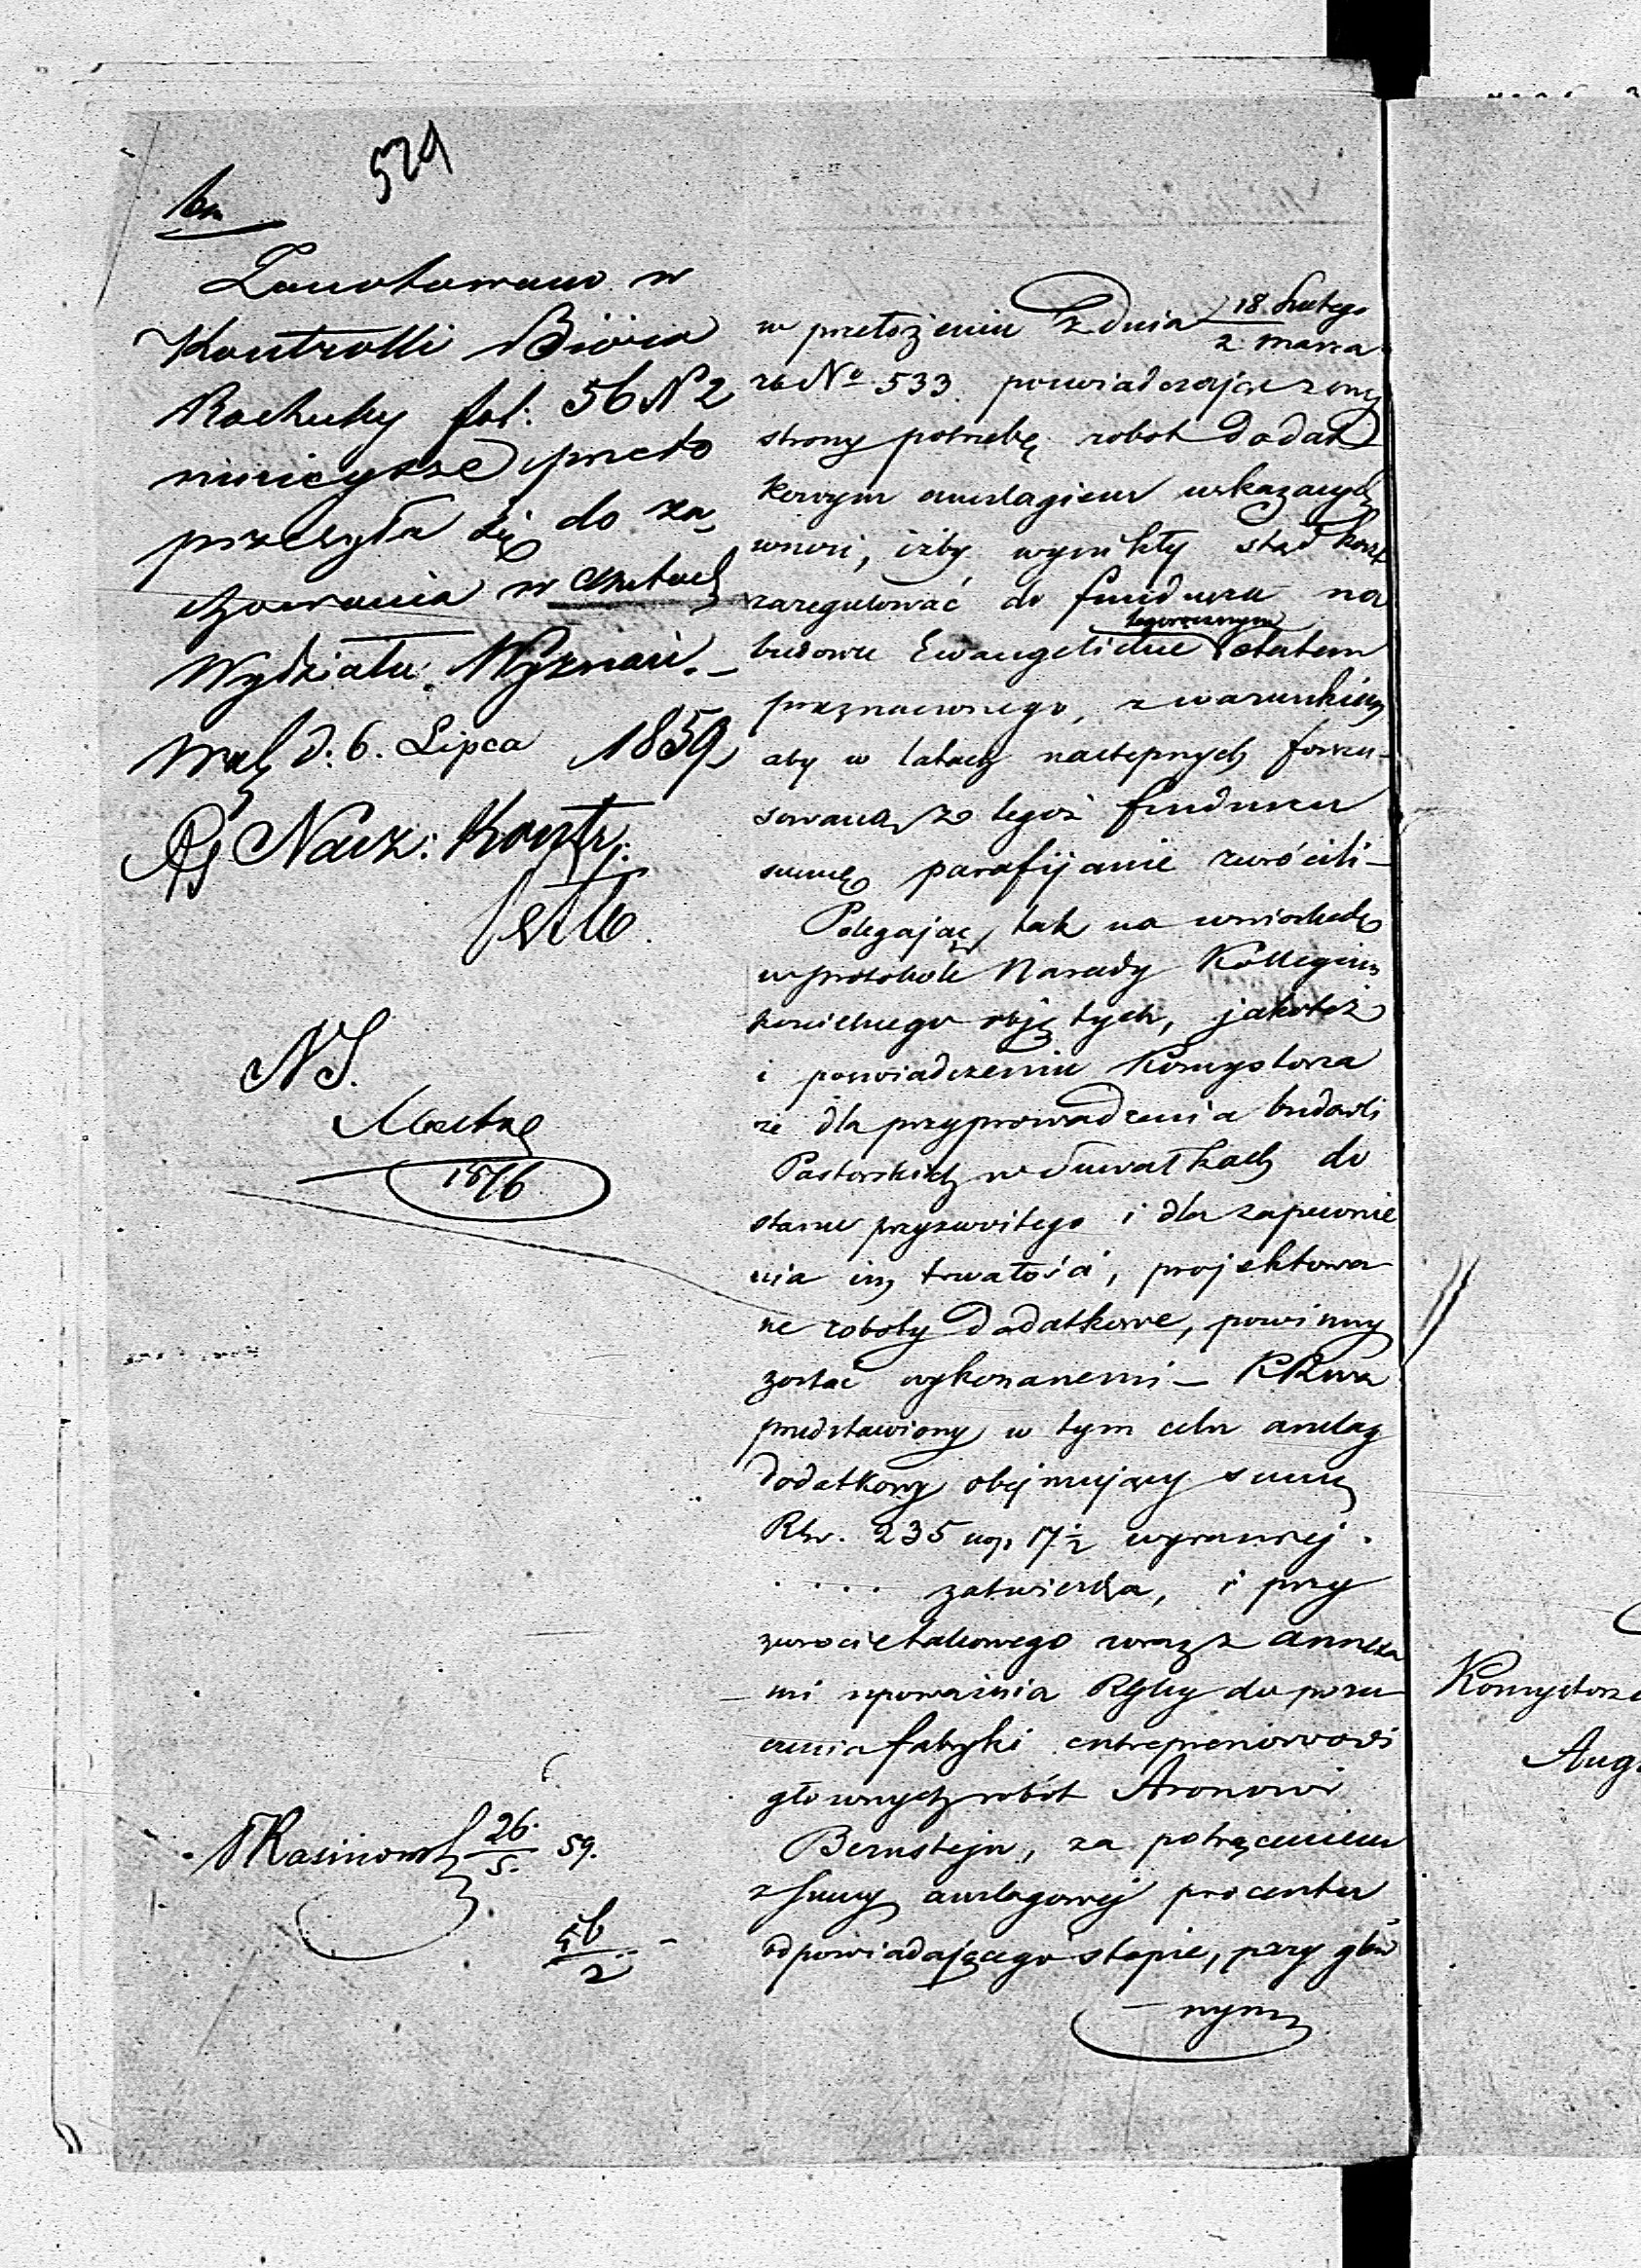 529
Zanotowano w
Kontrolli Bióra
Rachuby fol: 56 N 2
niniejsze przeto
przesyła się do za-
chowania w aktach
Wydziału Wyznań.-
d: 6. Lipca 1859
Nacz: Kontr:
NS.
1876
26/5 59.
56/2
w przełożeniu z dnia 18 Lutego / 2 marca
za No 533. poswiadczając z swej
strony potrzebę robot dodat
kowym anszlagiem wskazanych
wnosi, iżby wynikły stąd koszt
zaregulować do funduszu na
budowle Ewangelickie tegorocznym etatem
przeznaczonego, z warunkiem
aby w latach następnych forszu-
sowaną z tegoż funduszu
summę parafijanie zwrócili-
Polegając tak na wnioskach
w protokole Narady Kollegium
koscielnego objętych, jakoteż
i poswiadczeniu Konsystorza
że dla przyprowadzenia budowli
Pastorskich w Suwałkach do
stanu przyzwoitego i dla zapewnie
nia im trwałości, projektowa
ne roboty dodatkowe, powinny
zostać wykonanemi -
przedstawiony w tym celu anszlag
dodatkowy obejmujący summę
Rbr. 235 kop. 17½ wyraźniej.
.... zatwierdza, i przy
zwrocie takowego wraz z annexa
mi upoważnia do poru
czenia fabryki entreprenerowi
głownych robót Aronowi
Bernstejn, za potrąceniem
z summy anszlagowej procentu
odpowiadającego stopie, przy głów
nym
Konsystorz
Aug